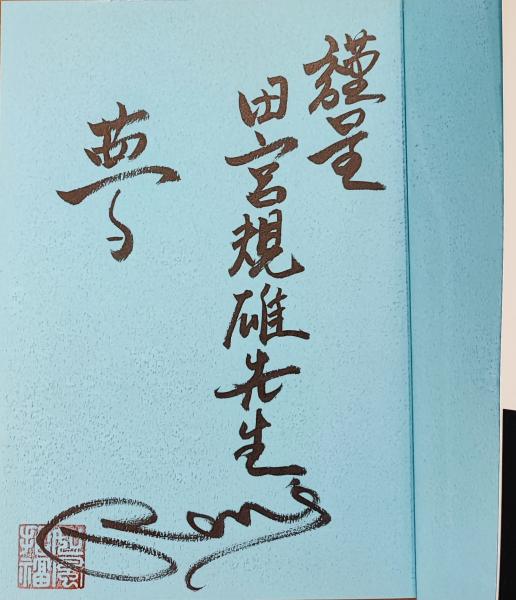 謹呈
田宮規雄先生
夢